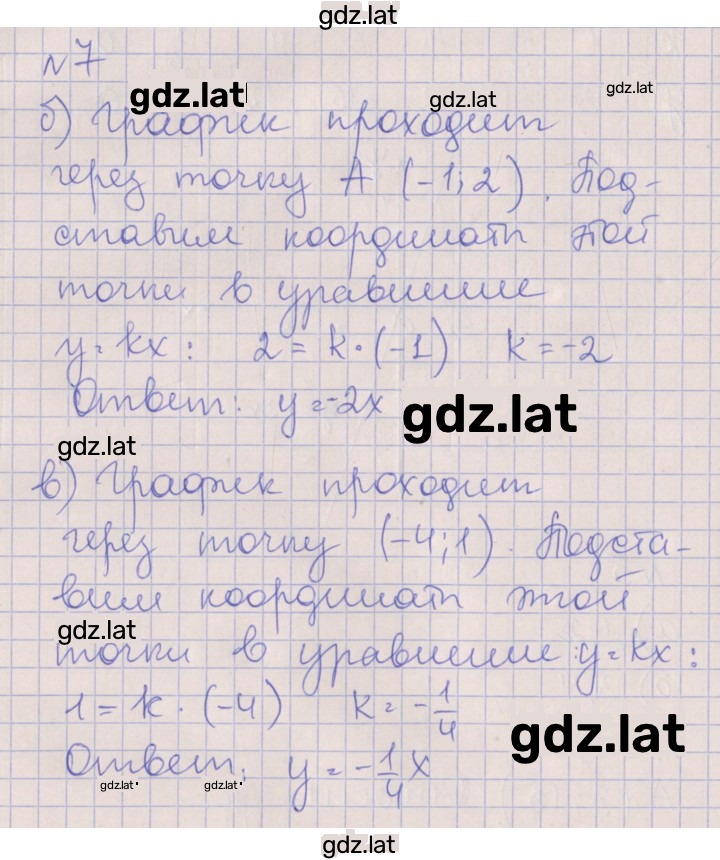 gdz.lat
№7
gdz.lat
gdz.lat
gdz.lat
б) График проходит
через точку А (-1; 2). Под-
ставим координаты этой
точки в уравнение
y = kx: 2 = k·(-1) k = -2
Ответ: y = -2x
gdz.lat
gdz.lat
в) График проходит
через точку (-4; 1). Подста-
вим координаты этой
gdz.lat
точки в уравнение y = kx:
1 = k·(-4) k = -1/4
gdz.lat
Ответ: y = -1/4 x
gdz.lat
gdz.lat
gdz.lat